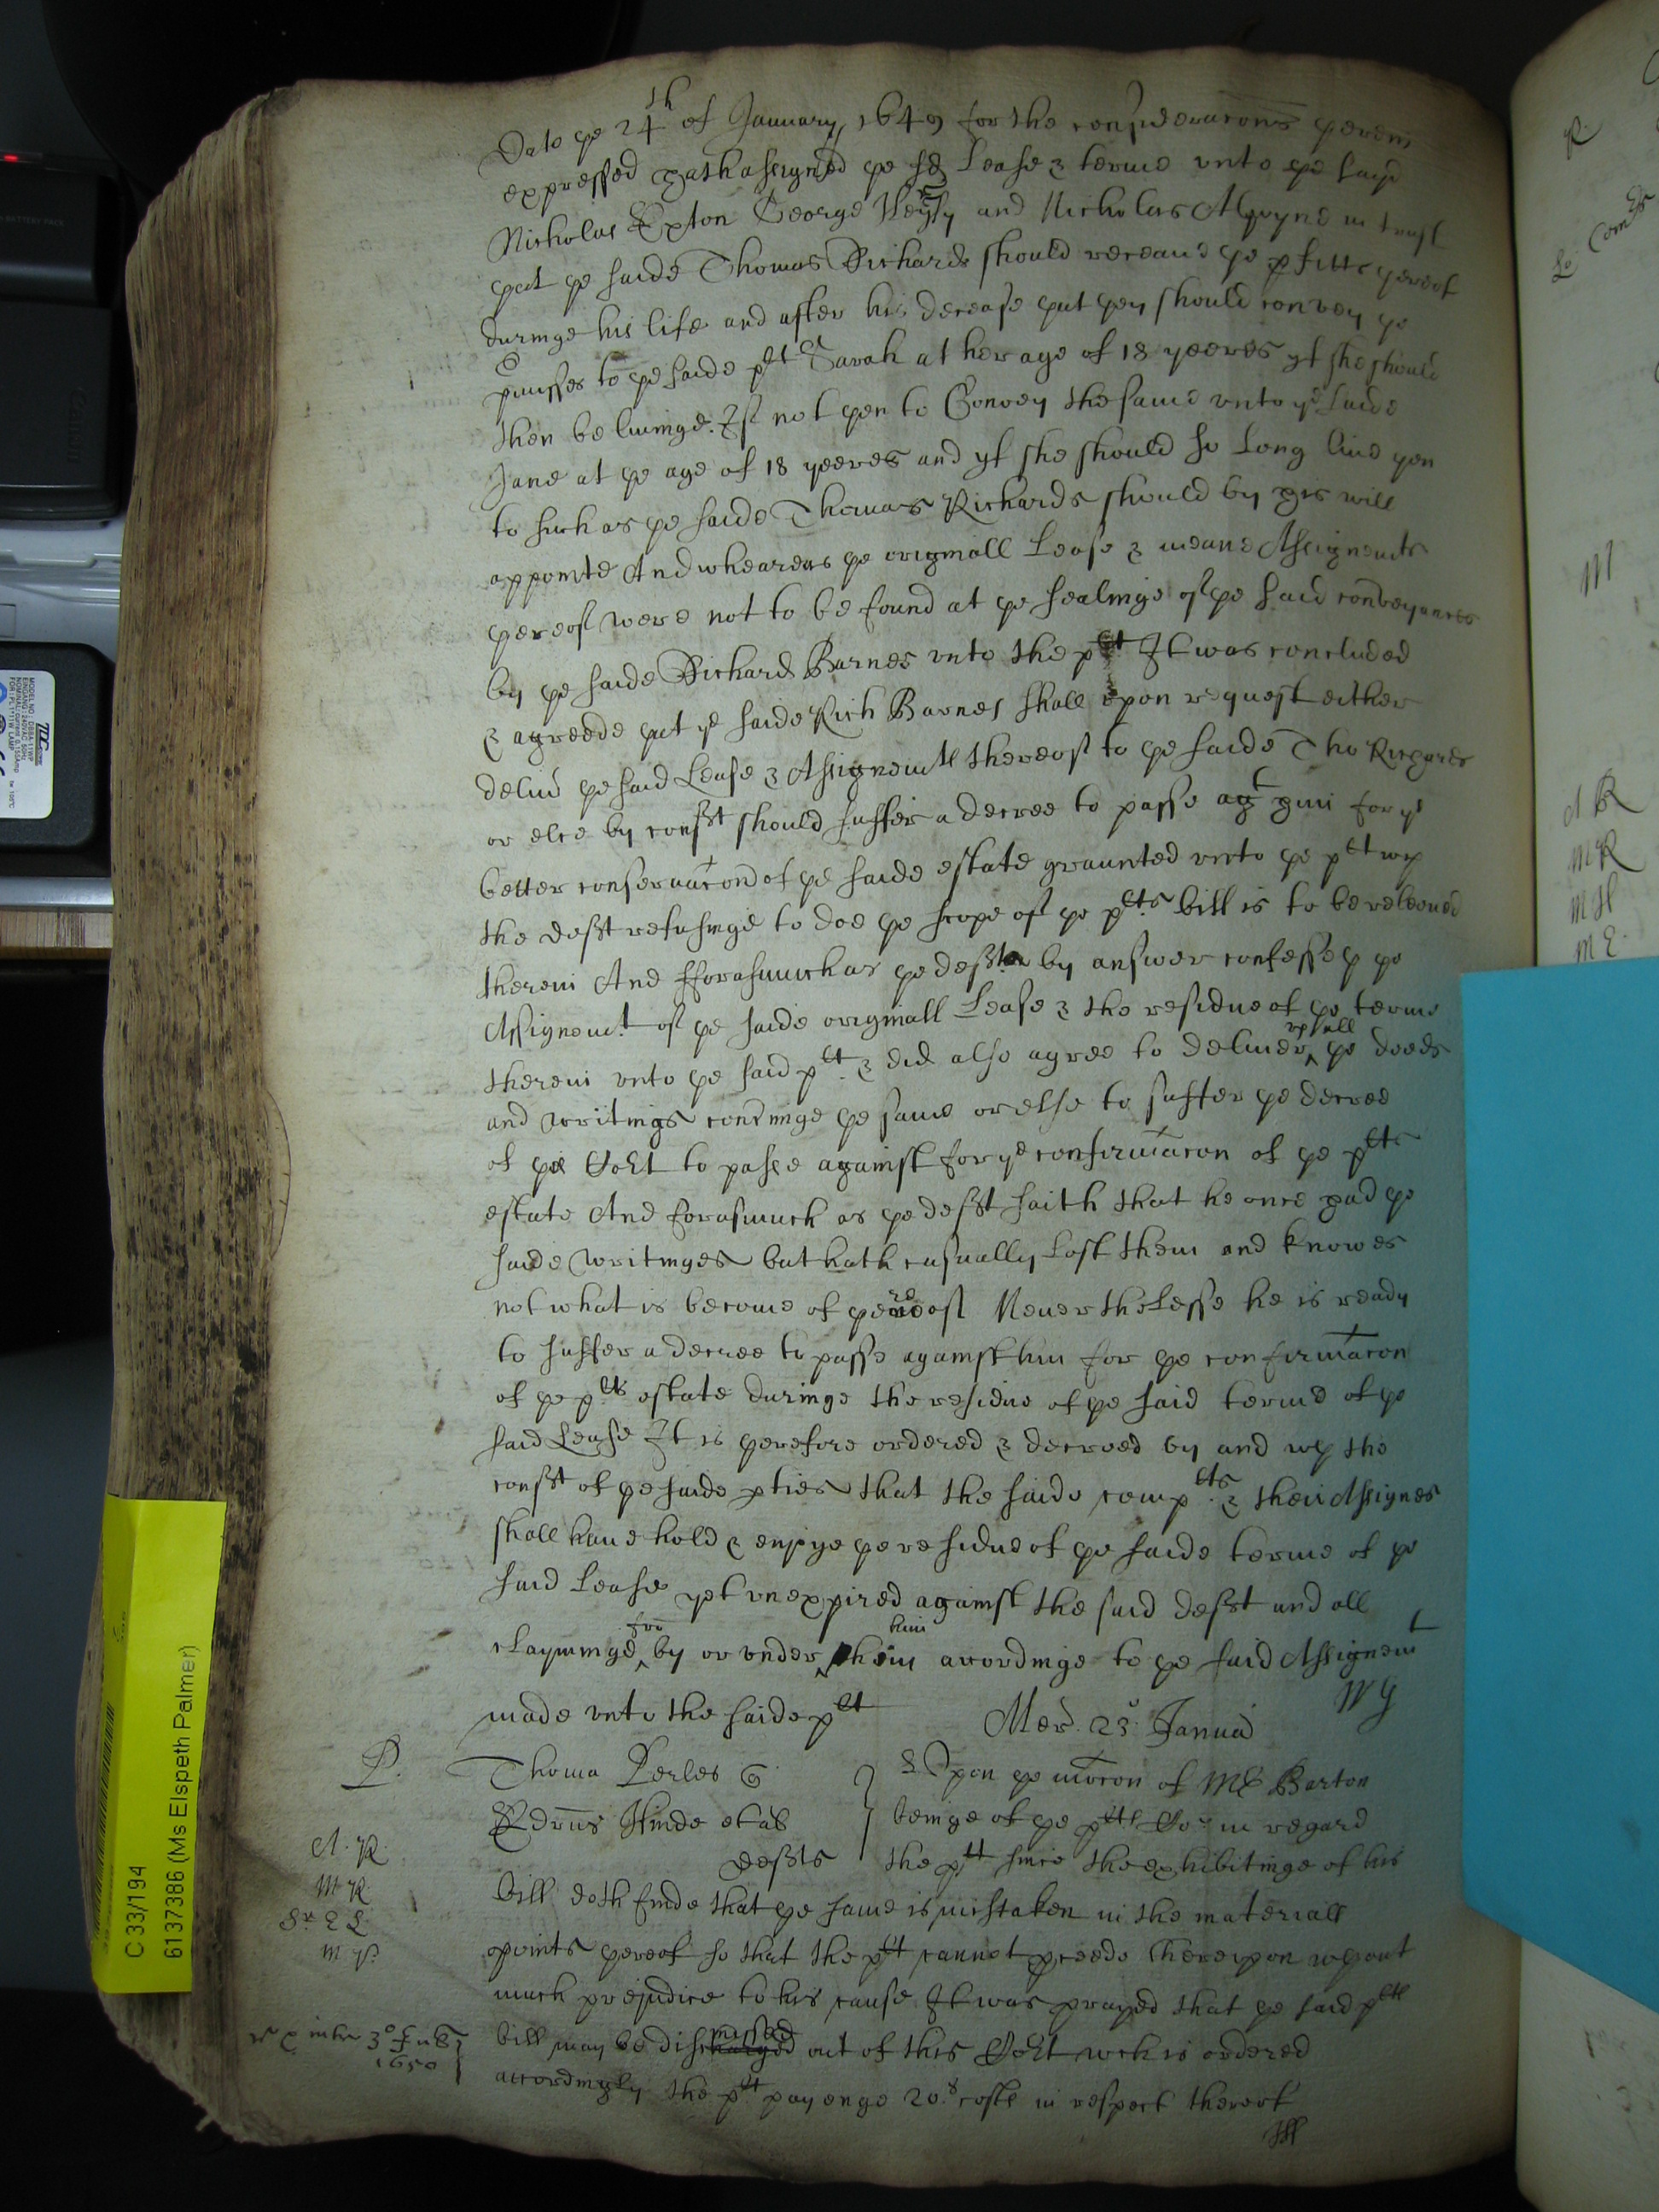 Date ye 24th of January 1649 for the consideracons yerein
expressed hath assigned ye sd Lease & terme vnto ye said
Nicholas Exton George and Nicholas Alwyne in trust
yat ye saide Thomas Richards should receaue ye pfitts yereof
duringe his life and after his decease yat yey should convey ye
pmisses to ye saide plt Sarah at her age of 18 yeeres yf she should
then be liuinge. If not yen to Convey the same vnto ye saide
Jane at ye age of 18 yeeres and yf she should so Long liue yen
to such as ye saide Thomas Richards should by his will
appointe And wheareas ye originall Lease & meane Assignemts
yereof were not to be found at ye sealinge of ye said conveyances
by ye saide Richard Barnes vnto the plt It was concluded
& agreede yat ye saide Rich Barnes shall vpon request either
deliu ye said Lease & Assignemts thereof to ye saide Tho Richards
or else by consst should suffer a decree to passe agt him for ye
better conseruacon of ye saide estate graunted vnto ye plt wch
the defft refusinge to doe ye scope of ye plts bill is to be releeued
therein And fforasmuch as ye defft by answer confesseth ye
Assignemt of ye saide originall Lease & the residue of ye terme
therein vnto ye said plt & did also agree to deliuer vp all ye deeds
and writings concninge ye same or else to suffer ye decree
of ye Court to passe against for ye confirmacon of ye plts
estate And forasmuch as ye defft saith that he once had ye
saide writinges but hath casually Lost them and knowes
not what is become of yereof Neuerthelesse he is ready
to suffer a decree to passe against him for ye confirmacon
of ye plts estate duringe the residue of ye said terme of ye
said Lease It is yerefore ordered & decreed by and wth the
consst of ye saide pties that the saide complts & their Assignes
shall haue hold & enjoye ye residue of ye saide terme of ye
said Lease yet vnexpired against the said defft and all
clayminge fro by or vnder him them acordinge to ye said Assignemt
made vnto the saide plt
WG
Mer. 23o Januar
P.
Thoma Perles
Edrus Hinde et al
deffts
Vpon ye mocon of Mr Barton
beinge of ye plts Co. in regard
the plt since the exhibitinge of his
A. R.
M R
Sr E L
M P.
bill doth finde that ye same is mistaken in the materiall
points yereof so that the plt cannot pceede therevpon wthout
much prejudice to his cause It was prayed that ye said plts
bill may be discharged missed out of this Court wch is ordered
accordingly the plt payenge 20s costs in respect thereof
3o Feb
1650
C 33/194
6137386 (Ms Elspeth Palmer)